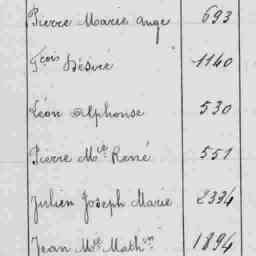 Pierre Marie Ange 693
Fçois Désiré 1140
Léon Alphonse 530
Pierre Mie René 551
Julien Joseph Marie 2334
Jean Mie Mathin 1894